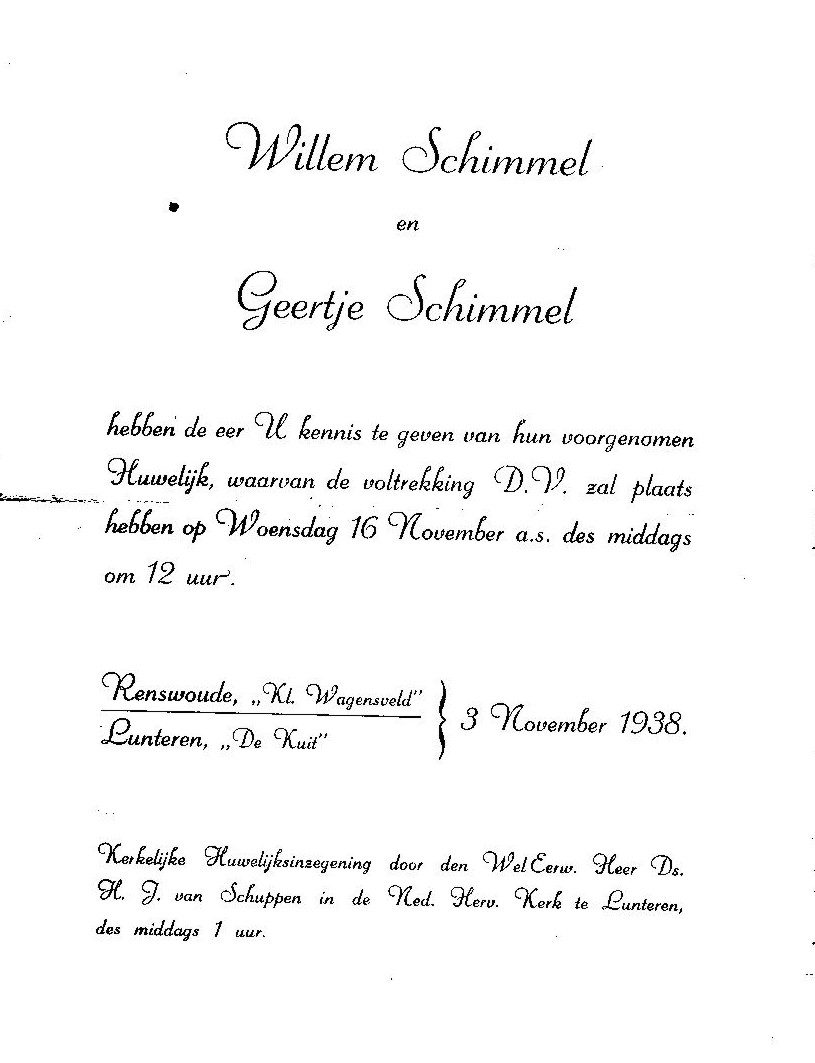 Willem Schimmel
en
Geertje Schimmel
hebben de eer U kennis te geven van hun voorgenomen
Huwelijk, waarvan de voltrekking D.V. zal plaats
hebben op Woensdag 16 November a.s. des middags
om 12 uur.
Renswoude, „Kl. Wagensveld”
Lunteren, „De Kuit”
} 3 November 1938.
Kerkelijke Huwelijksinzegening door den WelEerw. Heer Ds.
H. J. van Schuppen in de Ned. Herv. Kerk te Lunteren,
des middags 1 uur.